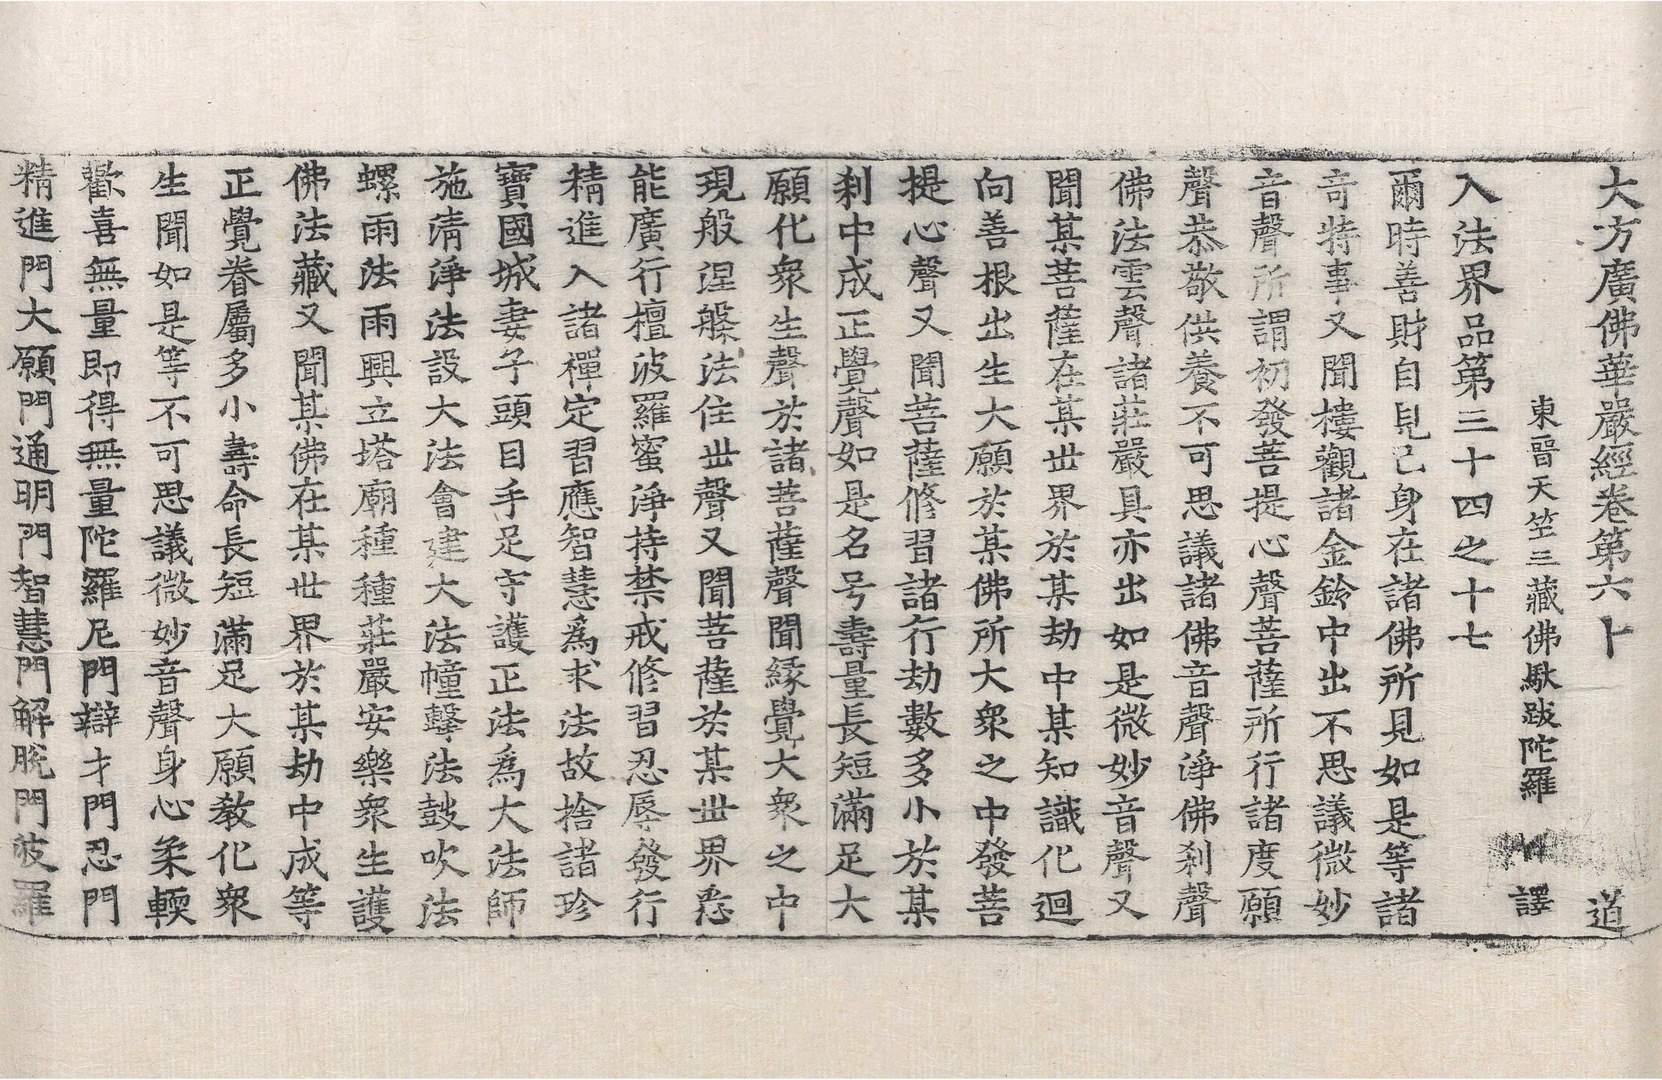 大方廣佛華嚴經卷第六十 道
東晉天竺三藏佛馱跋陀羅 譯
入法界品第三十四之十七
爾時善財自見己身在諸佛所見如是等諸
奇特事又聞樓觀諸金鈴中出不思議微妙
音聲所謂初發菩提心聲菩薩所行諸度願
聲恭敬供養不可思議諸佛音聲淨佛剎聲
佛法雲聲諸莊嚴具亦出如是微妙音聲又
聞某菩薩在某世界於某劫中某知識化迴
向善根出生大願於某佛所大衆之中發菩
提心聲又聞菩薩修習諸行劫數多小於某
剎中成正覺聲如是名号壽量長短滿足大
願化衆生聲於諸菩薩聲聞緣覺大衆之中
現般涅槃法住世聲又聞菩薩於某世界悉
能廣行檀波羅蜜淨持禁戒修習忍辱發行
精進入諸禪定習應智慧爲求法故捨諸珍
寶國城妻子頭目手足守護正法爲大法師
施清淨法設大法會建大法幢擊法鼓吹法
螺雨法雨興立塔廟種種莊嚴安樂衆生護
佛法藏又聞某佛在某世界於某劫中成等
正覺眷屬多小壽命長短滿足大願教化衆
生聞如是等不可思議微妙音聲身心柔輭
歡喜無量即得無量陀羅尼門辯才門忍門
精進門大願門通明門智慧門解脫門波羅